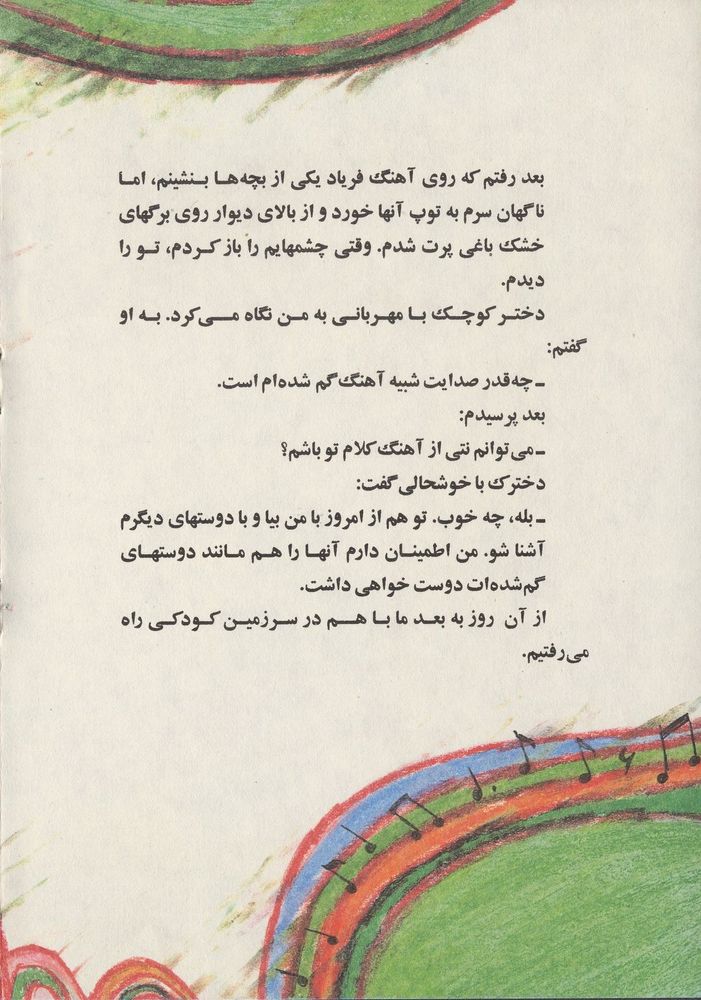 بعد رفتم که روی آهنگ فریاد یکی از بچه‌ها بنشینم، اما
ناگهان سرم به توپ آنها خورد و از بالای دیوار روی برگهای
خشک باغی پرت شدم. وقتی چشمهایم را باز کردم، تو را
دیدم.
دختر کوچک با مهربانی به من نگاه می‌کرد. به او
گفتم:
ـ چه‌قدر صدایت شبیه آهنگ گم شده‌ام است.
بعد پرسیدم:
ـ می‌توانم نتی از آهنگ کلام تو باشم؟
دخترک با خوشحالی گفت:
ـ بله، چه خوب. تو هم از امروز با من بیا و با دوستهای دیگرم
آشنا شو. من اطمینان دارم آنها را هم مانند دوستهای
گم‌شده‌ات دوست خواهی داشت.
از آن روز به بعد ما با هم در سرزمین کودکی راه
می‌رفتیم.